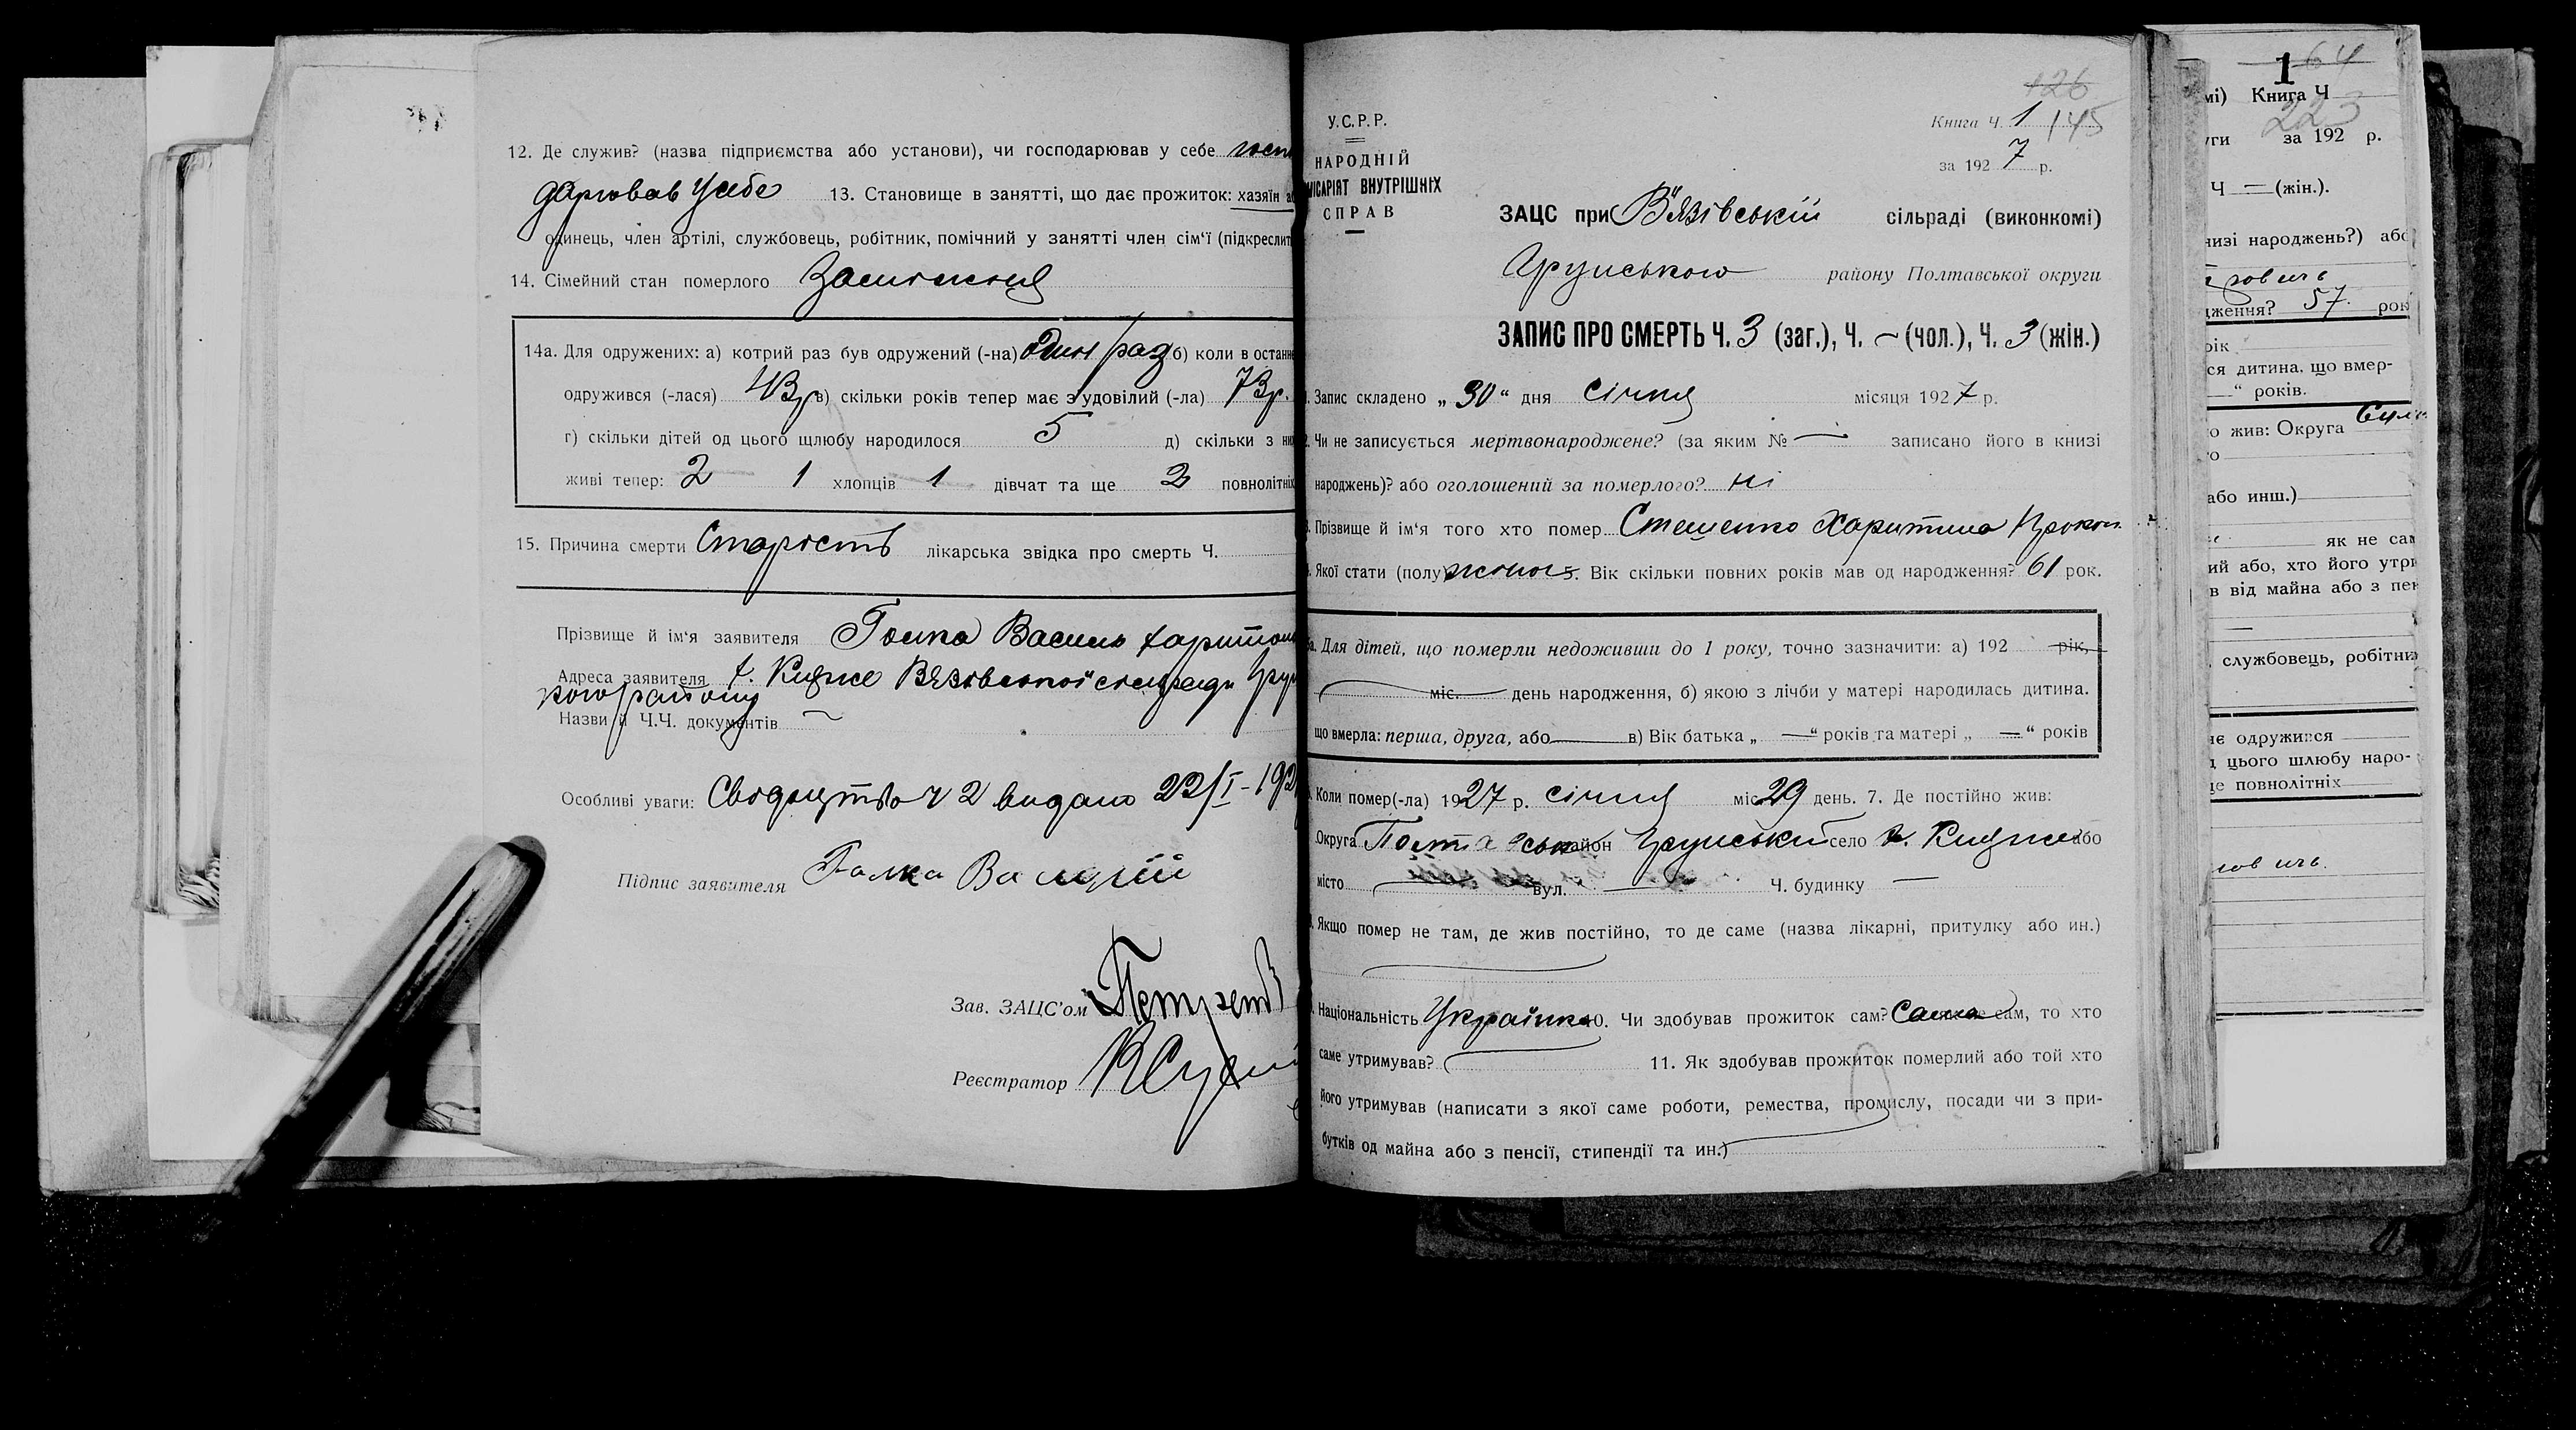 12. Де служив? (назва підприємства або установи), чи господарював у себе госпо
дарював у себе 13. Становище в занятті, що дає прожиток: хазяїн
одинець, член артілі, службовець, робітник, помічний у занятті член сім'ї (підкреслит
14. Сімейний стан померлого
14а. Для одружених: а) котрий раз був одружений (-на) один раз б) коли в останн
одружився (-лася) 43 р в) скільки років тепер має з удовілий (-ла) 73 р.
г) скільки дітей од цього щлюбу народилося 5 д) скільки з них
живі тепер: 2 1 хлопців 1 дівчат та ще 2 повнолітніх
15. Причина смерти Старість лікарська звідка про смерть Ч.
Прізвище й ім'я заявителя Галка Василь Харитон
Адреса заявителя х. Вязівської сільради Грун
ського району
Назви й Ч.Ч. документів
Особливі уваги: Свідоцтво Ч 2 видано 22/I-192
Підпис заявителя Галка
Зав. ЗАЦС'ом
Реєстратор
126
Книга Ч. 1 145
за 1927 р.
У.С.Р.Р.
НАРОДНІЙ
МІСАРІЯТ ВНУТРІШНІХ
СПРАВ
ЗАЦС при Вязівській сільраді (виконкомі)
Грунського району Полтавської округи
ЗАПИС ПРО СМЕРТЬ Ч. 3 (заг.), Ч. – (чол.), Ч. 3 (жін.)
Запис складено „30“ дня січня місяця 1927 р.
Чи не записується мертвонароджене? (за яким № — записано його в книзі
народжень)? або оголошений за померлого? ні
Прізвище й ім'я того хто помер Стешенко Харитина Прокоп.
Якої стати (полу) жіноч 5. Вік скільки повних років мав од народження? 61 рок.
Для дітей, що померли недоживши до 1 року, точно зазначити: а) 192 рік,
міс. день народження, б) якою з лічби у матері народилась дитина.
що вмерла: перша, друга, або — в) Вік батька „ — “ років та матері „ — “ років
Коли помер(-ла) 1927 р. січня міс 29 день. 7. Де постійно жив:
Округа Полтавська район Грунський село х. або
місто вул. — Ч. будинку —
Якщо помер не там, де жив постійно, то де саме (назва лікарні, притулку або ин.)
Національність Українка 10. Чи здобував прожиток сам? Сама сам, то хто
саме утримував? 11. Як здобував прожиток померлий або той хто
його утримував (написати з якої саме роботи, ремества, промислу, посади чи з при-
бутків од майна або з пенсії, стипендії та ин.)
1 64
мі) Книга Ч
223
уги за 192 р.
Ч — (жін.).
низі народжень?) або
ження? 57 рок
рік
ся дитина. що вмер-
“ років.
о жив: Округа
або инш.)
як не сам
ий або, хто його утри
в від майна або з пен
службовець, робітни
не одружився
д цього шлюбу наро-
ще повнолітніх